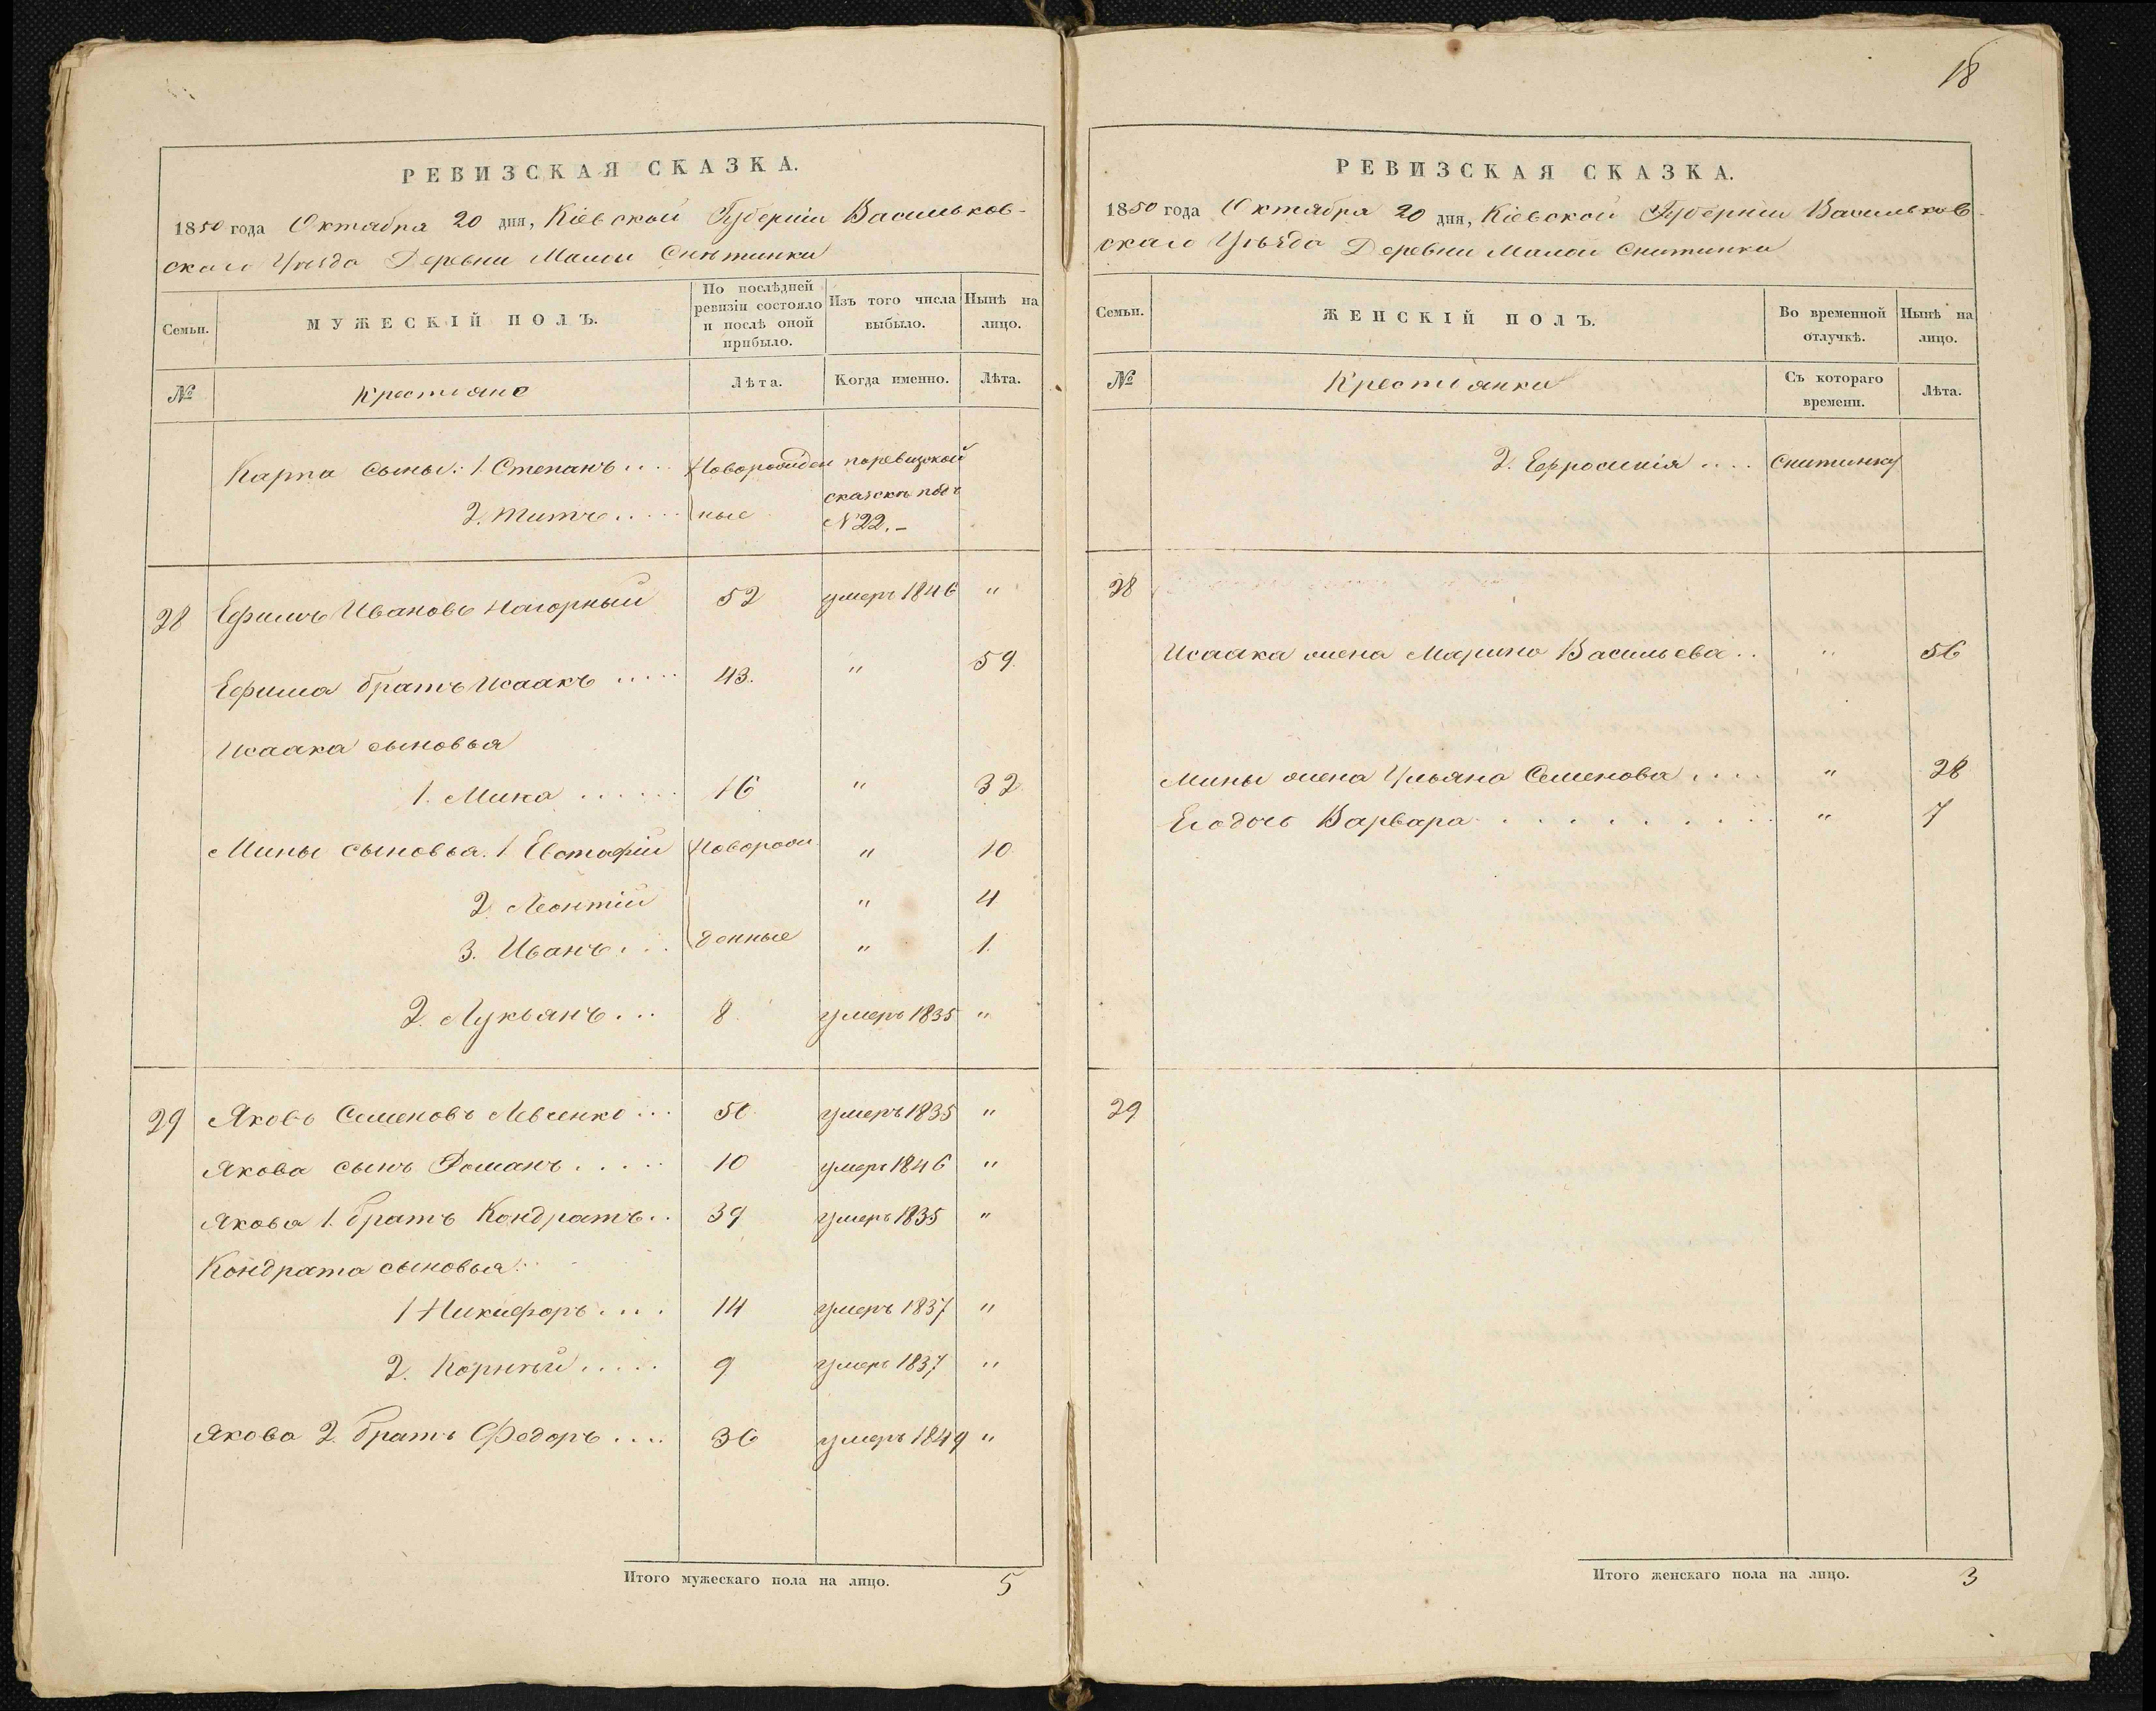 РЕВИЗСКАЯ СКАЗКА.
1850 года Октября 20 дня, Кіевской Губерніи Васильков-
скаго Уѣзда Деревни Малой Снѣтинки
Семьи. МУЖЕСКІЙ ПОЛЪ. По послѣдней ревизіи состояло и послѣ оной прибыло. Изъ того числа выбыло. Нынѣ на лицо.
№ Крестьяне Лѣта. Когда именно. Лѣта.
Карпа сыны: 1. Степанъ .... Новорожден поревизской
сказскѣ подъ
2. Титъ ..... ные №22.-
28 Ефимъ Ивановъ Нагорный 52 умеръ 1846 "
Ефима братъ Исаакъ ..... 43. " 59.
Исаака сыновья
1. Мина ...... 16 " 32
Мины сыновья. 1. Евстафій Новорож " 10
2. Леонтій " 4
3. Иванъ ... денные " 1.
2. Лукьянъ ... 8. умеръ 1835 "
29 Яковъ Семеновъ Левченко ... 50 умеръ 1835 "
Якова сынъ Романъ ..... 10 умеръ 1846 "
Якова 1. братъ Кондратъ .. 39 умеръ 1835 "
Кондрата сыновья:
1 Никифоръ .... 14 умеръ 1837 "
2. Корнѣй ..... 9 умеръ 1837 "
Якова 2. братъ Федоръ .... 36 умеръ 1849 "
Итого мужескаго пола на лицо. 5
18
РЕВИЗСКАЯ СКАЗКА.
1850 года Октября 20 дня, Кіевской Губерніи Васильков-
скаго Уѣзда Деревни Малой Снитинки
Семьи. ЖЕНСКІЙ ПОЛЪ. Во временной отлучкѣ. Нынѣ на лицо.
№ Крестьянки Съ котораго времени. Лѣта.
2. Ефросинія .... Снитинку
28
Исаака жена Марина Васильева .. " 56
Мины жена Ульяна Семенова .... " 28
Его дочь Варвара .......... " 7
29
Итого женскаго пола на лицо. 3